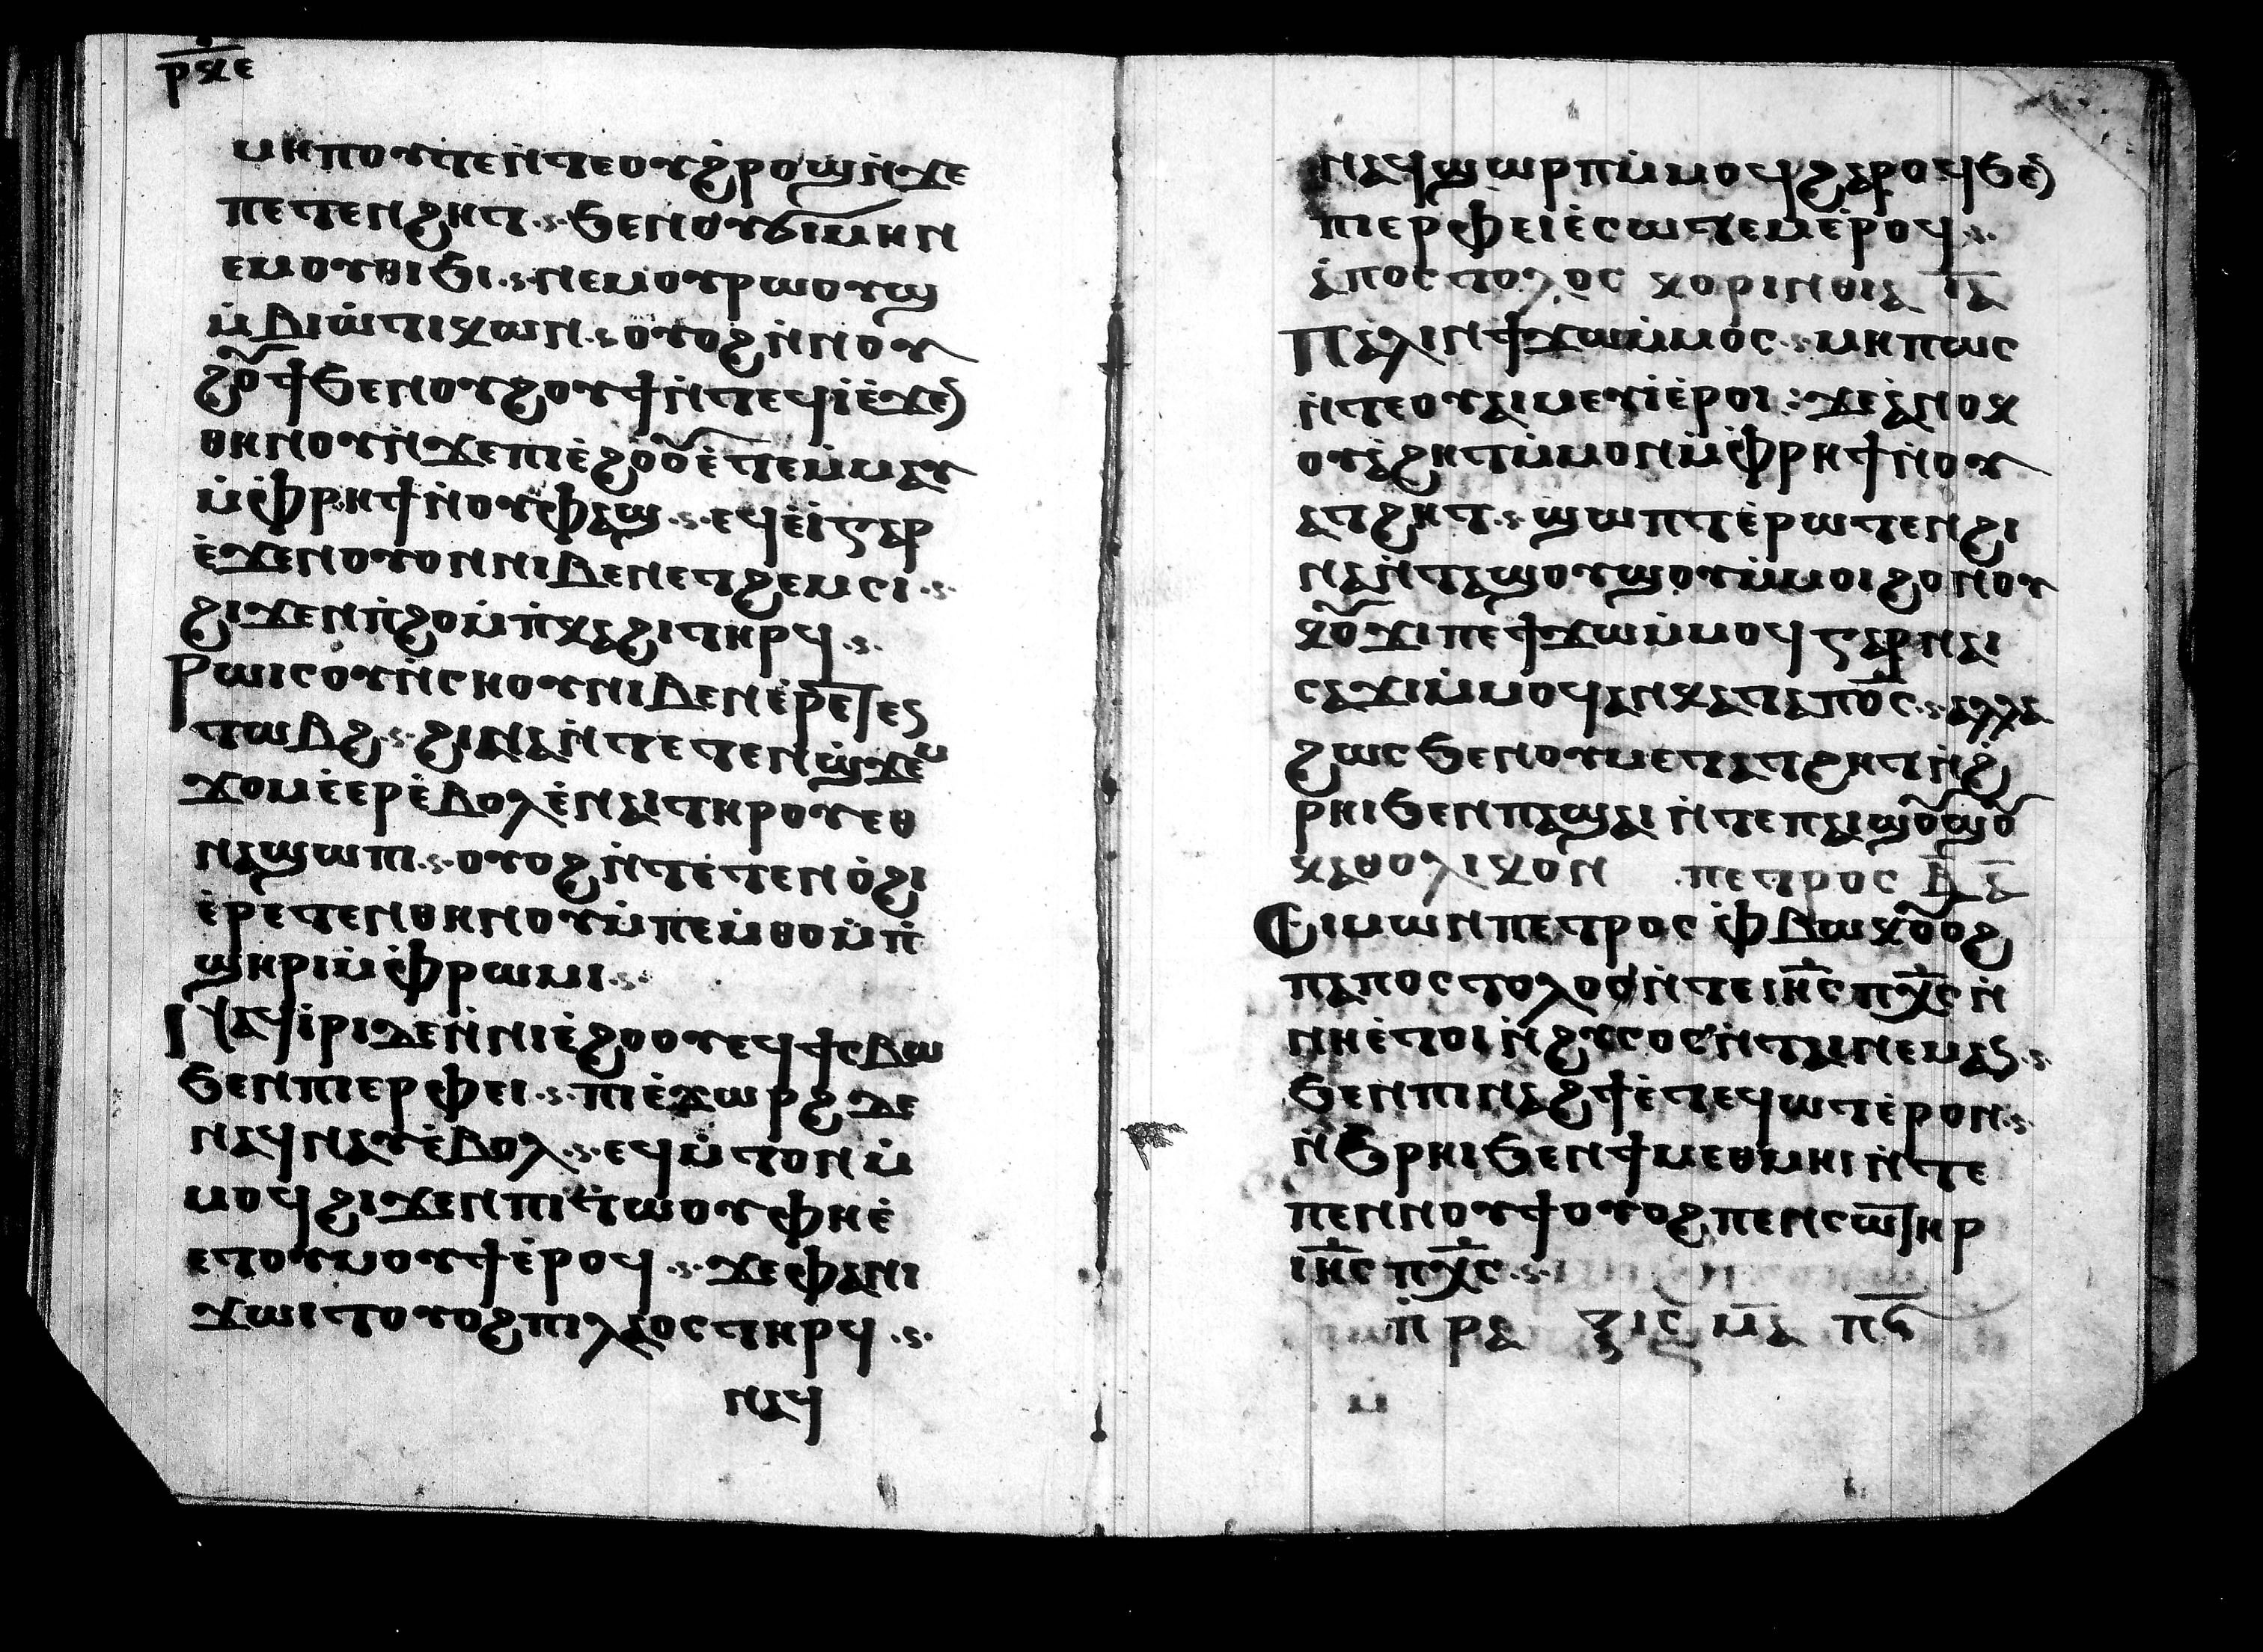 ⲣⲝⲉ
ⲙⲏⲡⲟⲩⲧⲉⲛ̇ⲧⲉⲟⲩϩ̇ⲣⲟϣⲛ̇ϫⲉ
ⲡⲉⲧⲉⲛϩⲏⲧ ⲋ ϧⲉⲛⲟⲩϭⲓⲙⲏⲛ
ⲉⲙⲟⲩⲑⲓϧⲓ ⲋ ⲛⲉⲙⲟⲩⲣⲱⲟⲩϣ
ⲙ̇ⲃⲓⲱ̇ⲧⲓⲕⲱⲛ ⲋ ⲟⲩⲟϩⲛ̇ⲛⲟⲩ
ϩⲟ̅ϯϧⲉⲛⲟⲩϩⲟⲩϯⲛ̇ⲧⲉϥⲓ̇ⲉ̇ϫⲉ̅
ⲑⲏⲛⲟⲩⲛ̇ϫⲉⲡⲓⲉ̇ϩⲟⲟ̅ⲉ̇ⲧⲉⲙ̇ⲙⲁⲩ
ⲙ̇ⲫ̇ⲣⲏϯⲛ̇ⲟⲩⲫⲁϣ ⲋ ⲉϥⲉ̇ⲓ̇ⲅⲁⲣ
ⲉ̇ϫⲉⲛⲟⲩⲟⲛⲛⲓⲃⲉⲛⲉⲧϩⲉⲙⲥⲓ ⲋ
ϩⲓϫⲉⲛⲡ̇ϩⲟⲙ̇ⲡ̇ⲕⲁϩⲓⲧⲏⲣϥ ⲋ
Ⲣⲱⲓⲥⲟⲩⲛ̇ⲥⲏⲟⲩⲛⲓⲃⲉⲛⲉ̇ⲣⲉⲧⲉ
ⲧⲱⲃϩ ⲋ ϩⲓⲛⲁⲛ̇ⲧⲉⲧⲉⲛϣ̇ϫⲉⲙ
ϫⲟⲙⲉ̇ⲉⲣⲉ̇ⲃⲟⲗⲉ̇ⲛⲁⲓⲧⲏⲣⲟⲩⲉⲑ
ⲛⲁϣⲱⲡⲓ ⲋ ⲟⲩⲟϩⲛ̇ⲧⲉⲧⲉⲛⲟ̇ϩⲓ
ⲉ̇ⲣⲉⲧⲉⲛⲑⲏⲛⲟⲩⲙ̇ⲡⲉⲙ̇ⲑⲟⲙ̇ⲡ̇
ϣⲏⲣⲓⲙ̇ⲫ̇ⲣⲱⲙⲓ ⲋ
Ⲛⲁϥⲓ̇ⲣⲓⲇⲉⲛ̇ⲛⲓⲉ̇ϩⲟⲟⲩⲉϥϯⲥⲃⲱ
ϧⲉⲛⲡⲓⲉⲣⲫⲉⲓ ⲋ ⲡⲓⲉ̇ϫⲱⲣϩⲇⲉ
ⲛⲁϥⲛⲁⲩⲉ̇ⲃⲟⲗ ⲋ ⲉϥⲙ̇ⲧⲟⲛⲙ̇
ⲙⲟϥϩⲓϫⲉⲛⲡⲓⲧⲱⲟⲩⲫⲏⲉ̇
ⲉⲧⲟⲩⲙⲟⲩϯⲉ̇ⲣⲟϥ ⲋ ϫⲉⲫⲁⲛⲓ
ϫⲱⲓⲧⲟⲩⲟϩⲡⲓⲗⲁⲟⲥⲧⲏⲣϥ ⲋ
ⲛⲁϥ
ⲛⲁϥϣⲱⲣⲡⲙ̇ⲙⲟϥϩⲁⲣⲟϥϧⲉ̅
ⲡⲓⲉⲣⲫⲉⲓⲉ̇ⲥⲱⲧⲉⲙⲉ̇ⲣⲟϥ ⲋ
ⲁ̇ⲡⲟⲥⲧⲟⲗⲟⲥ ⲕⲟⲣⲓⲛⲑⲓⲁ ⲓ̅ⲁ̅
Ⲡⲁⲗⲓⲛϯϫⲱⲙ̇ⲙⲟⲥ ⲋ ⲙⲏⲡⲱⲥ
ⲛ̇ⲧⲉⲟⲩⲁⲓⲙⲉⲩⲓ̇ⲉ̇ⲣⲟⲓ ϫⲉⲁ̇ⲛⲟⲕ
ⲟⲩⲁ̇ϩⲏⲧⲙ̇ⲙⲟⲛⲙ̇ⲫ̇ⲣⲏϯⲛ̇ⲟⲩ
ⲁⲧϩⲏⲧ ⲋ ϣⲱⲡⲧⲉ̇ⲣⲱⲧⲉⲛϩⲓ
ⲛⲁⲛ̇ⲧⲁϣⲟⲩϣⲟⲩⲙ̇ⲙⲟⲓϩⲟⲛⲟⲩ
ⲕⲟ̅ϫⲓⲡⲉϯϫⲱⲙ̇ⲙⲟϥⲅⲁⲣⲛⲁⲓ
ⲥⲁϫⲓⲙ̇ⲙⲟϥⲁⲛⲕⲁⲧⲁⲡⲟ̅ⲥ̅ ⲋ ⲁⲗⲗⲁ
ϩⲱⲥϧⲉⲛⲟⲩⲙⲉⲧⲁⲧϩⲏⲧⲛ̇ϩ̇
ⲣⲏⲓϧⲉⲛⲡⲁϣⲁⲓ ⲛ̇ⲧⲉⲡⲁⲓϣⲟ̅ϣⲟ̅
ⲕⲁⲑⲟⲗⲓⲕⲟⲛ ⲡⲉⲧⲣⲟⲥ ⲃ̅ ⲁ̅
Ⲥⲓⲙⲱⲛⲡⲉⲧⲣⲟⲥ ⲫ̇ⲃⲱⲕⲟ̅ⲟϩ
ⲡⲁⲡⲟⲥⲧⲟⲗⲟⲥⲛ̇ⲧⲉⲓⲏ̅ⲥ̅ⲡⲭ̅ⲥ̅ⲛ̇
ⲛⲏⲉ̇ⲧⲟⲓⲛ̇ϩⲩⲥⲟⲥⲛ̇ⲧⲁⲓⲛⲉⲙⲁⲛ ⲋ
ϧⲉⲛⲡⲓⲛⲁϩϯⲉ̇ⲧⲉϥⲱⲧⲉ̇ⲣⲟⲛ ⲋ
ⲛ̇ϧⲣⲏⲓϧⲉⲛϯⲙⲉⲑⲙⲏⲓⲛ̇ⲧⲉ
ⲡⲉⲛⲛⲟⲩϯⲟⲩⲟϩⲡⲉⲛⲥⲱⲧⲏⲣ
ⲓⲏ̅ⲥ̅ ⲡⲭ̅ⲥ̅ ⲋ
ⲡ̇ⲣⲁ ⲝⲓⲥ ⲙ̅ⲁ̅ ⲡ̅ϭ̅